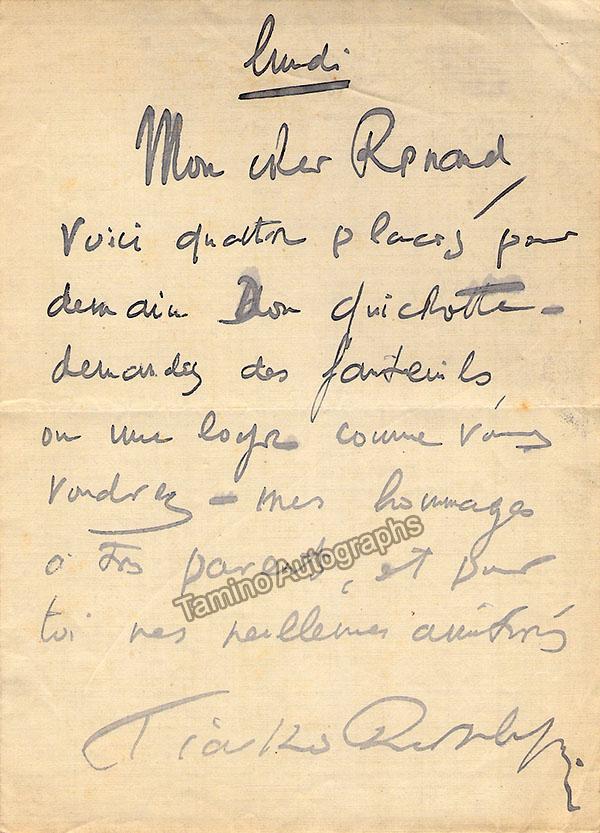 lundi
Mon cher Renard
Voici quatre places pour
demain Don Quichotte -
demandez des fauteuils
ou une loge comme vous
voudrez - mes hommages
à tes parents, et pour
toi mes meilleures amitiés
Tiarko Richepin
Tamino Autographs